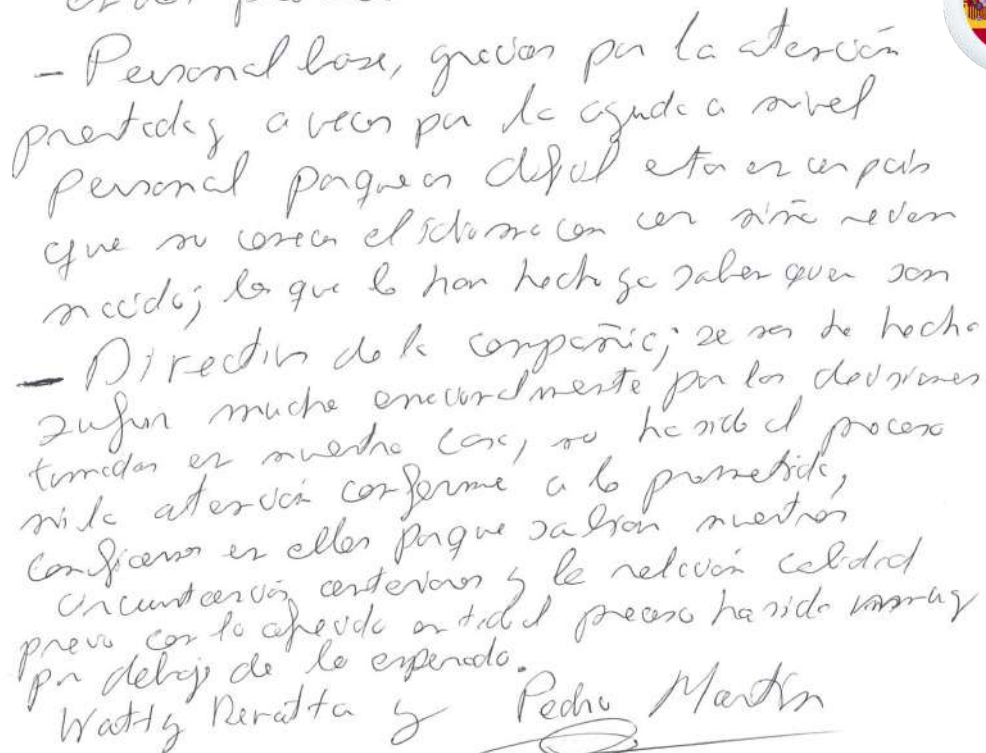 - Personal base, gracias por la atención
prestada y a veces por la ayuda a nivel
personal porque es difícil estar en un país
que no conoces el idioma con una niña recien
nacida; los que lo han hecho ya saben quien son
- Directivos de la compañía; se nos ha hecho
sufrir mucho emocionalmente por las decisiones
tomadas en nuestro caso, no ha sido el proceso
ni la atención conforme a lo prometido,
confiamos en ellos porque sabían nuestras
circunstancias anteriores y la relación calidad
precio con lo ofrecido en todo el proceso ha sido muy
por debajo de lo esperado.
Watty y Pedro Martín